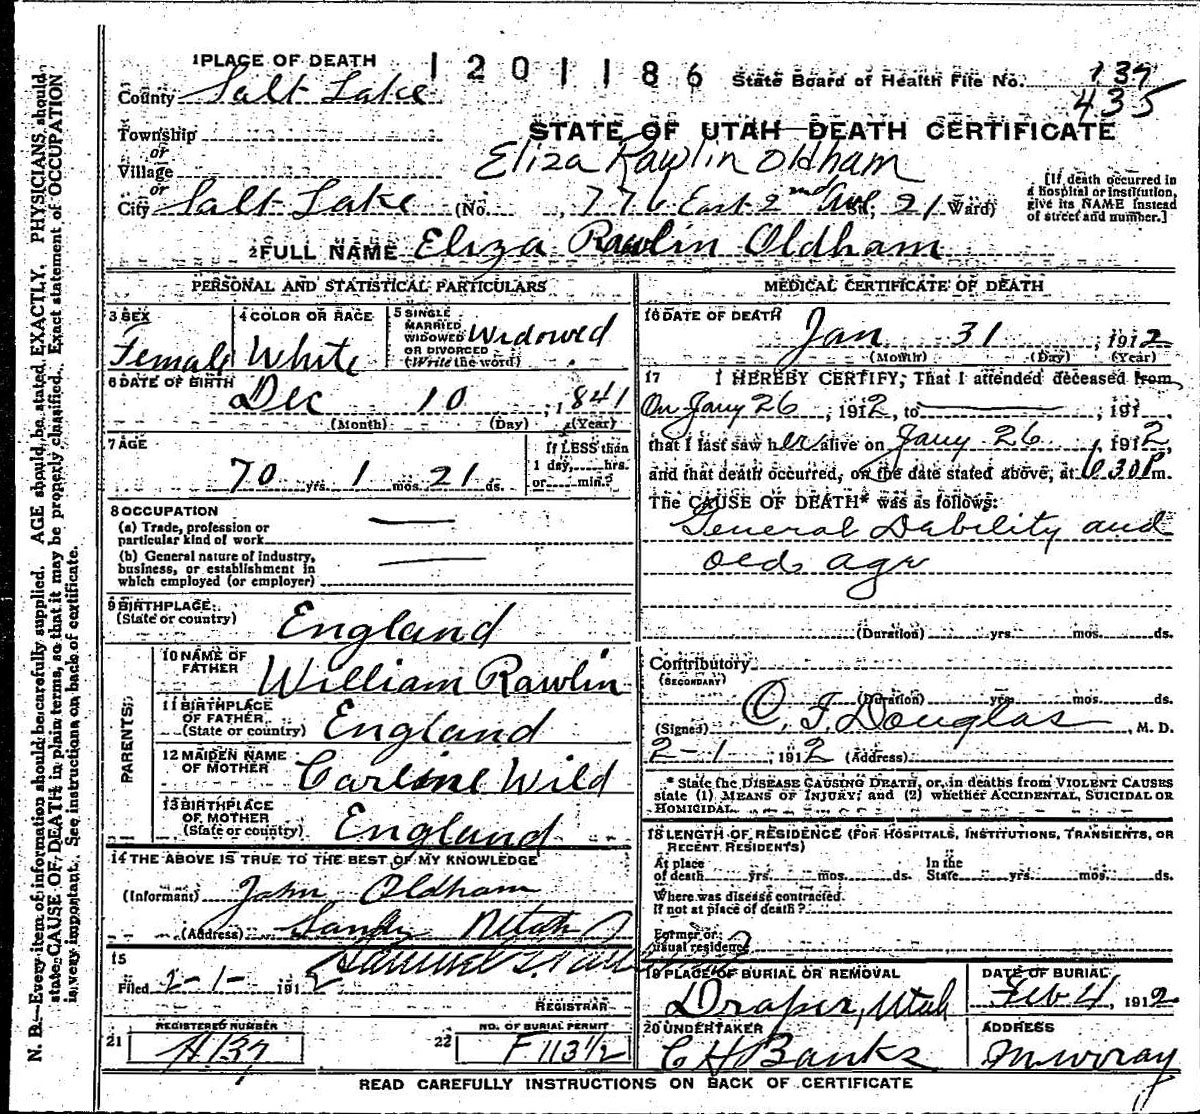 1 PLACE OF DEATH 1201186 State Board of Health File No. 137
County Salt Lake 435
Township STATE OF UTAH DEATH CERTIFICATE
or
Village Eliza Rawlin Oldham
or
City Salt Lake (No. , 776 East 2nd Ave St; 21 Ward)
[If death occurred in a Hospital or Institution, give its NAME instead of street and number.]
2 FULL NAME Eliza Rawlin Oldham
PERSONAL AND STATISTICAL PARTICULARS
3 SEX Female
4 COLOR OR RACE White
5 SINGLE MARRIED WIDOWED OR DIVORCED (Write the word) Widowed
6 DATE OF BIRTH Dec 10, 1841
(Month) (Day) (Year)
7 AGE 70 yrs. 1 mos. 21 ds.
If LESS than 1 day, hrs. or min.?
8 OCCUPATION
(a) Trade, profession or particular kind of work
(b) General nature of industry, business, or establishment in which employed (or employer)
9 BIRTHPLACE (State or country) England
PARENTS
10 NAME OF FATHER William Rawlin
11 BIRTHPLACE OF FATHER (State or country) England
12 MAIDEN NAME OF MOTHER Carline Wild
13 BIRTHPLACE OF MOTHER (State or country) England
14 THE ABOVE IS TRUE TO THE BEST OF MY KNOWLEDGE
(Informant) John Oldham
(Address) Sandy Utah
15
Filed 2-1- 1912
REGISTRAR
21 REGISTERED NUMBER A137
22 NO. OF BURIAL PERMIT F 113 1/2
MEDICAL CERTIFICATE OF DEATH
16 DATE OF DEATH Jan 31, 1912
(Month) (Day) (Year)
17 I HEREBY CERTIFY, That I attended deceased from
On Jany 26, 1912, to , 191
that I last saw her alive on Jany 26, 1912,
and that death occurred, on the date stated above, at 30 P m.
The CAUSE OF DEATH* was as follows:
General Dability and
old age
(Duration) yrs. mos. ds.
Contributory
(SECONDARY)
(Duration) yrs. mos. ds.
(Signed) Douglas, M. D.
2-1, 1912 (Address)
* State the DISEASE CAUSING DEATH, or, in deaths from VIOLENT CAUSES
state (1) MEANS OF INJURY; and (2) whether ACCIDENTAL, SUICIDAL OR
HOMICIDAL
18 LENGTH OF RESIDENCE (FOR HOSPITALS, INSTITUTIONS, TRANSIENTS, OR
RECENT RESIDENTS)
At place of death yrs. mos. ds. In the State yrs. mos. ds.
Where was disease contracted,
If not at place of death?
Former or usual residence
19 PLACE OF BURIAL OR REMOVAL Draper, Utah
DATE OF BURIAL Feb 4, 1912
20 UNDERTAKER C H Banks
ADDRESS Murray
READ CAREFULLY INSTRUCTIONS ON BACK OF CERTIFICATE
N. B.—Every item of information should be carefully supplied. AGE should be stated EXACTLY. PHYSICIANS should
state CAUSE OF DEATH in plain terms, so that it may be properly classified. Exact statement of OCCUPATION
is very important. See instructions on back of certificate.